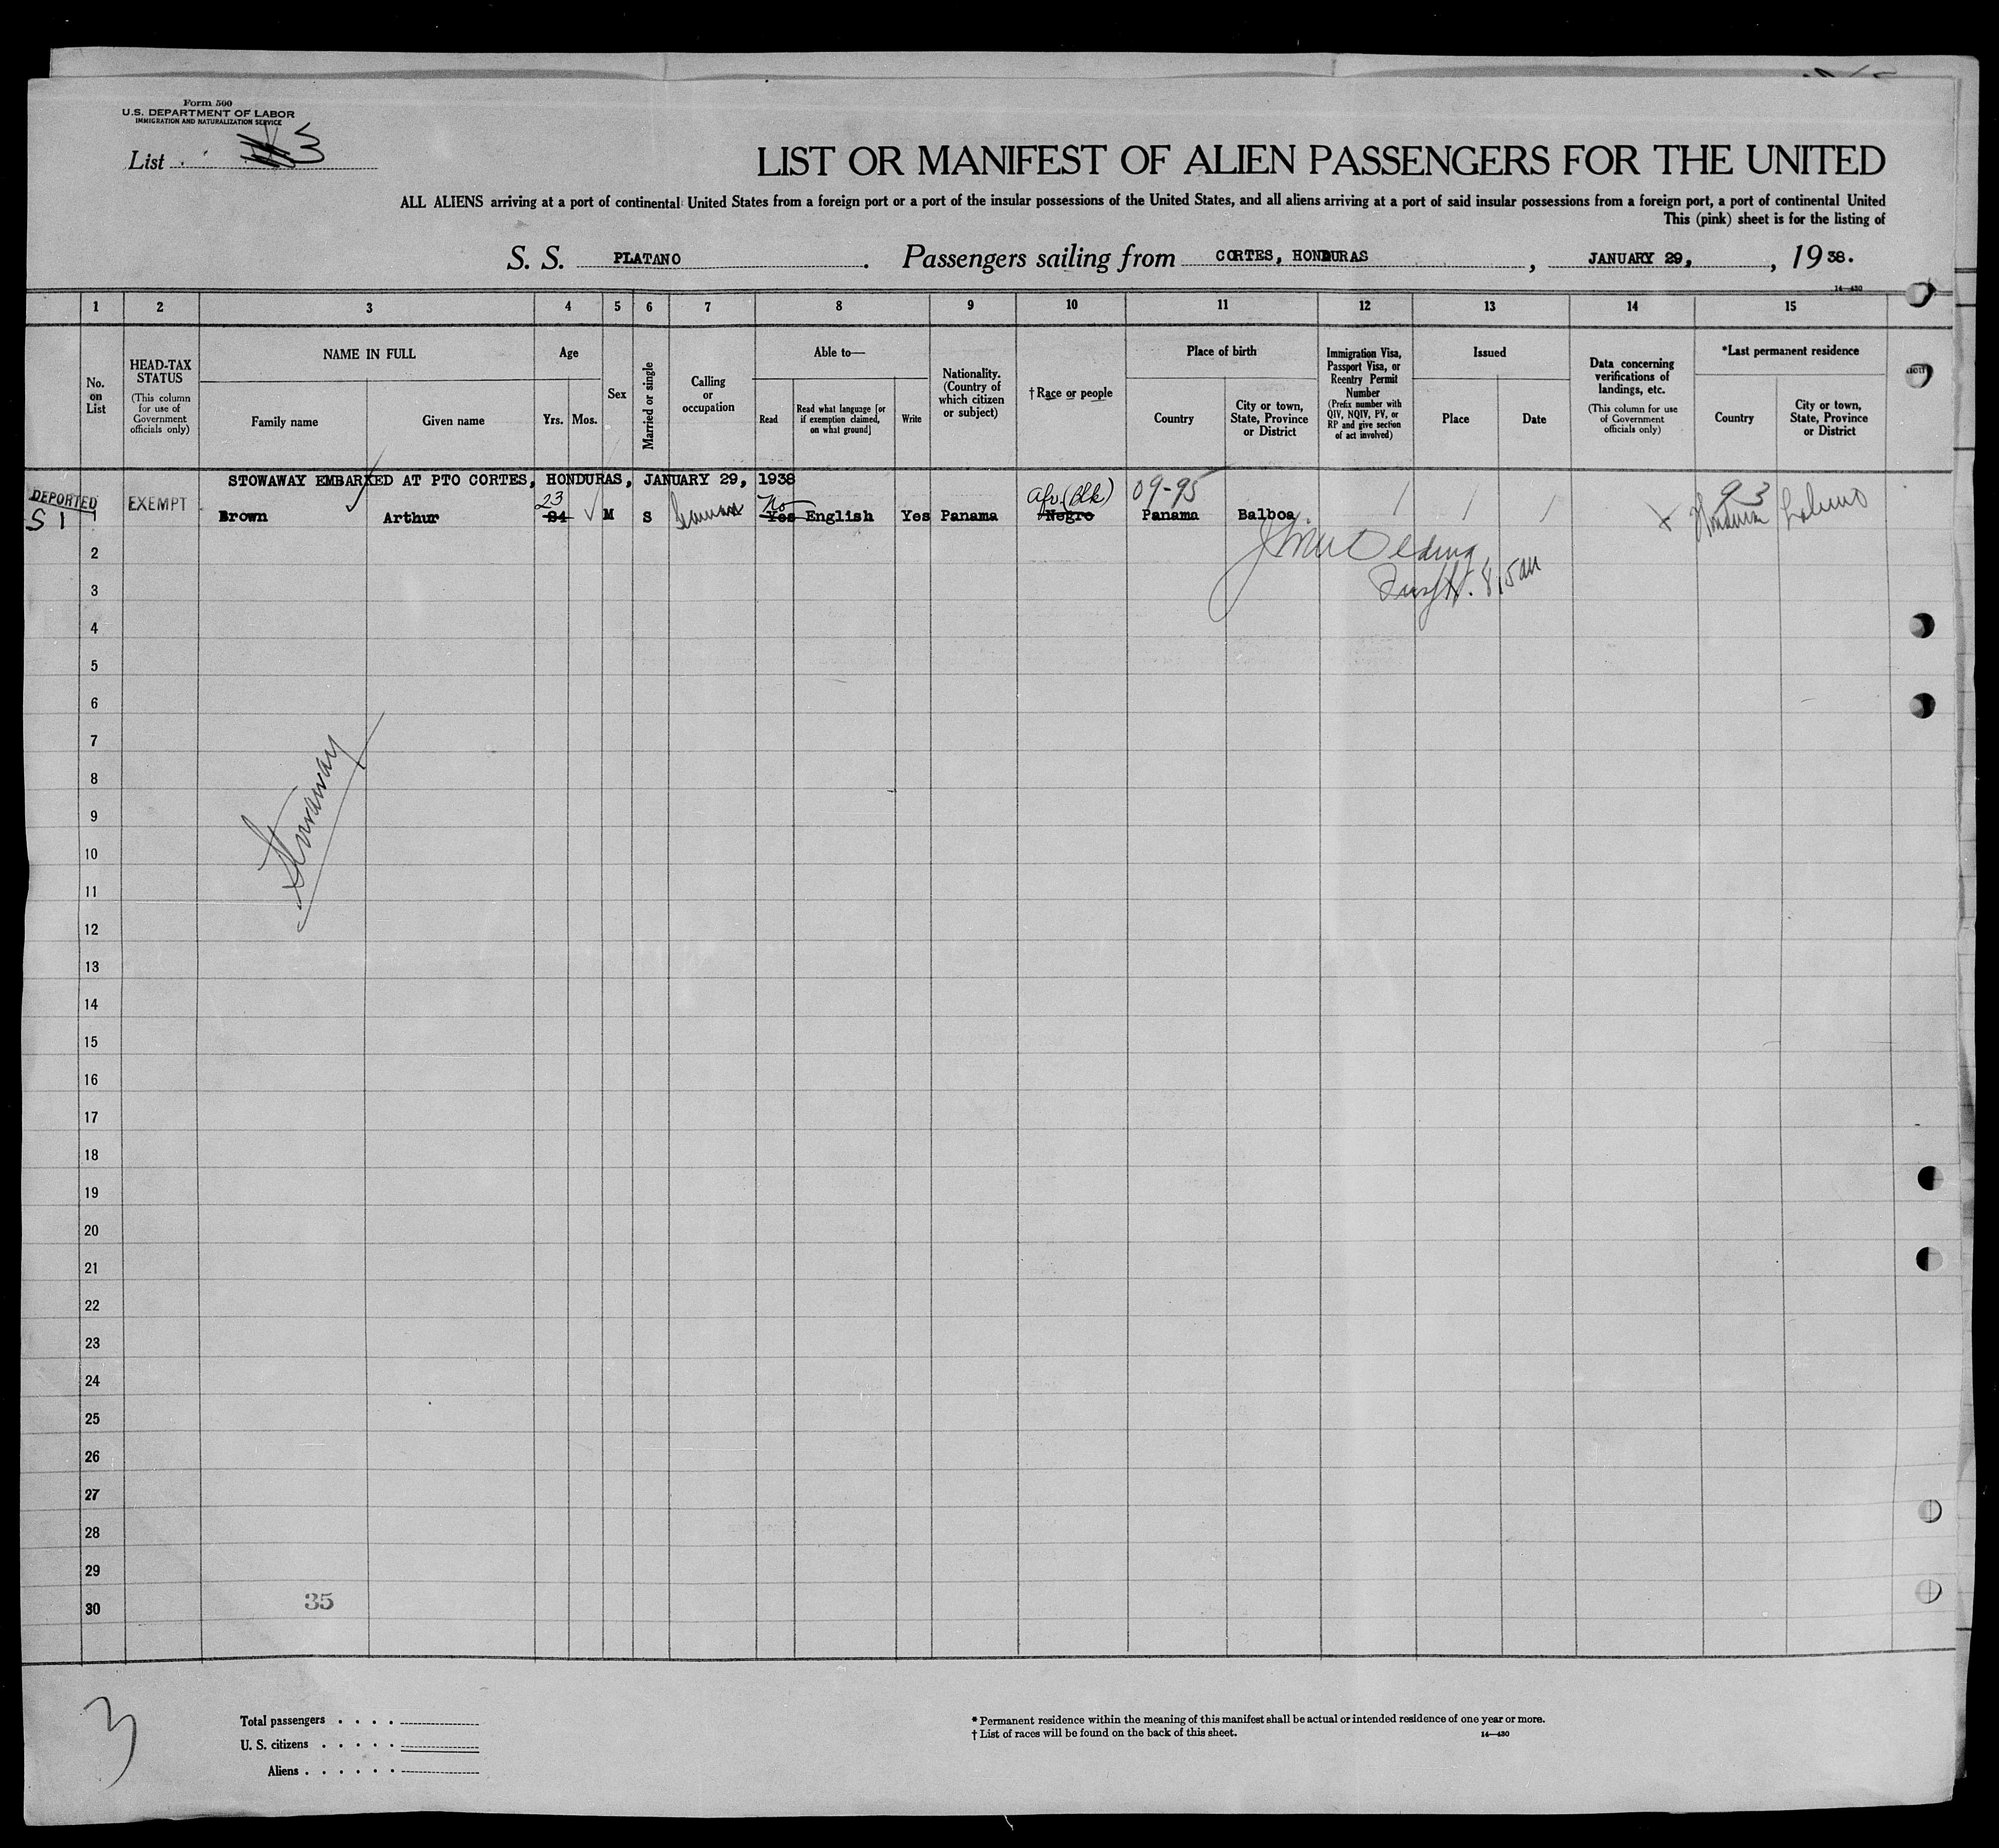 Form 500
U.S. DEPARTMENT OF LABOR
IMMIGRATION AND NATURALIZATION SERVICE
List 3
LIST OR MANIFEST OF ALIEN PASSENGERS FOR THE UNITED
ALL ALIENS arriving at a port of continental United States from a foreign port or a port of the insular possessions of the United States, and all aliens arriving at a port of said insular possessions from a foreign port, a port of continental United
This (pink) sheet is for the listing of
S. S. PLATANO. Passengers sailing from CORTES, HONDURAS, JANUARY 29, , 19 38.
14—430
1 2 3 4 5 6 7 8 9 10 11 12 13 14 15
No. on List
HEAD-TAX STATUS
(This column for use of Government officials only)
NAME IN FULL
Family name Given name
Age
Yrs. Mos.
Sex
Married or single
Calling or occupation
Able to—
Read
Read what language [or if exemption claimed, on what ground]
Write
Nationality. (Country of which citizen or subject)
†Race or people
Place of birth
Country
City or town, State, Province or District
Immigration Visa, Passport Visa, or Reentry Permit Number
(Prefix number with QIV, NQIV, PV, or RP and give section of act involved)
Issued
Place Date
Data concerning verifications of landings, etc.
(This column for use of Government officials only)
*Last permanent residence
Country
City or town, State, Province or District
STOWAWAY EMBARKED AT PTO CORTES, HONDURAS, JANUARY 29, 1938
DEPORTED EXEMPT 23 No Afr.(Blk) 09-95 93
S1 1 Brown Arthur 24 M S Seaman Yes English Yes Panama Negro Panama Balboa Honduras
2
3
8:15 AM
4
5
6
7
8
9
Stowaway
10
11
12
13
14
15
16
17
18
19
20
21
22
23
24
25
26
27
28
29
30
35
3
Total passengers . . . .
U. S. citizens . . . . .
Aliens . . . . . .
* Permanent residence within the meaning of this manifest shall be actual or intended residence of one year or more.
† List of races will be found on the back of this sheet.
14—430